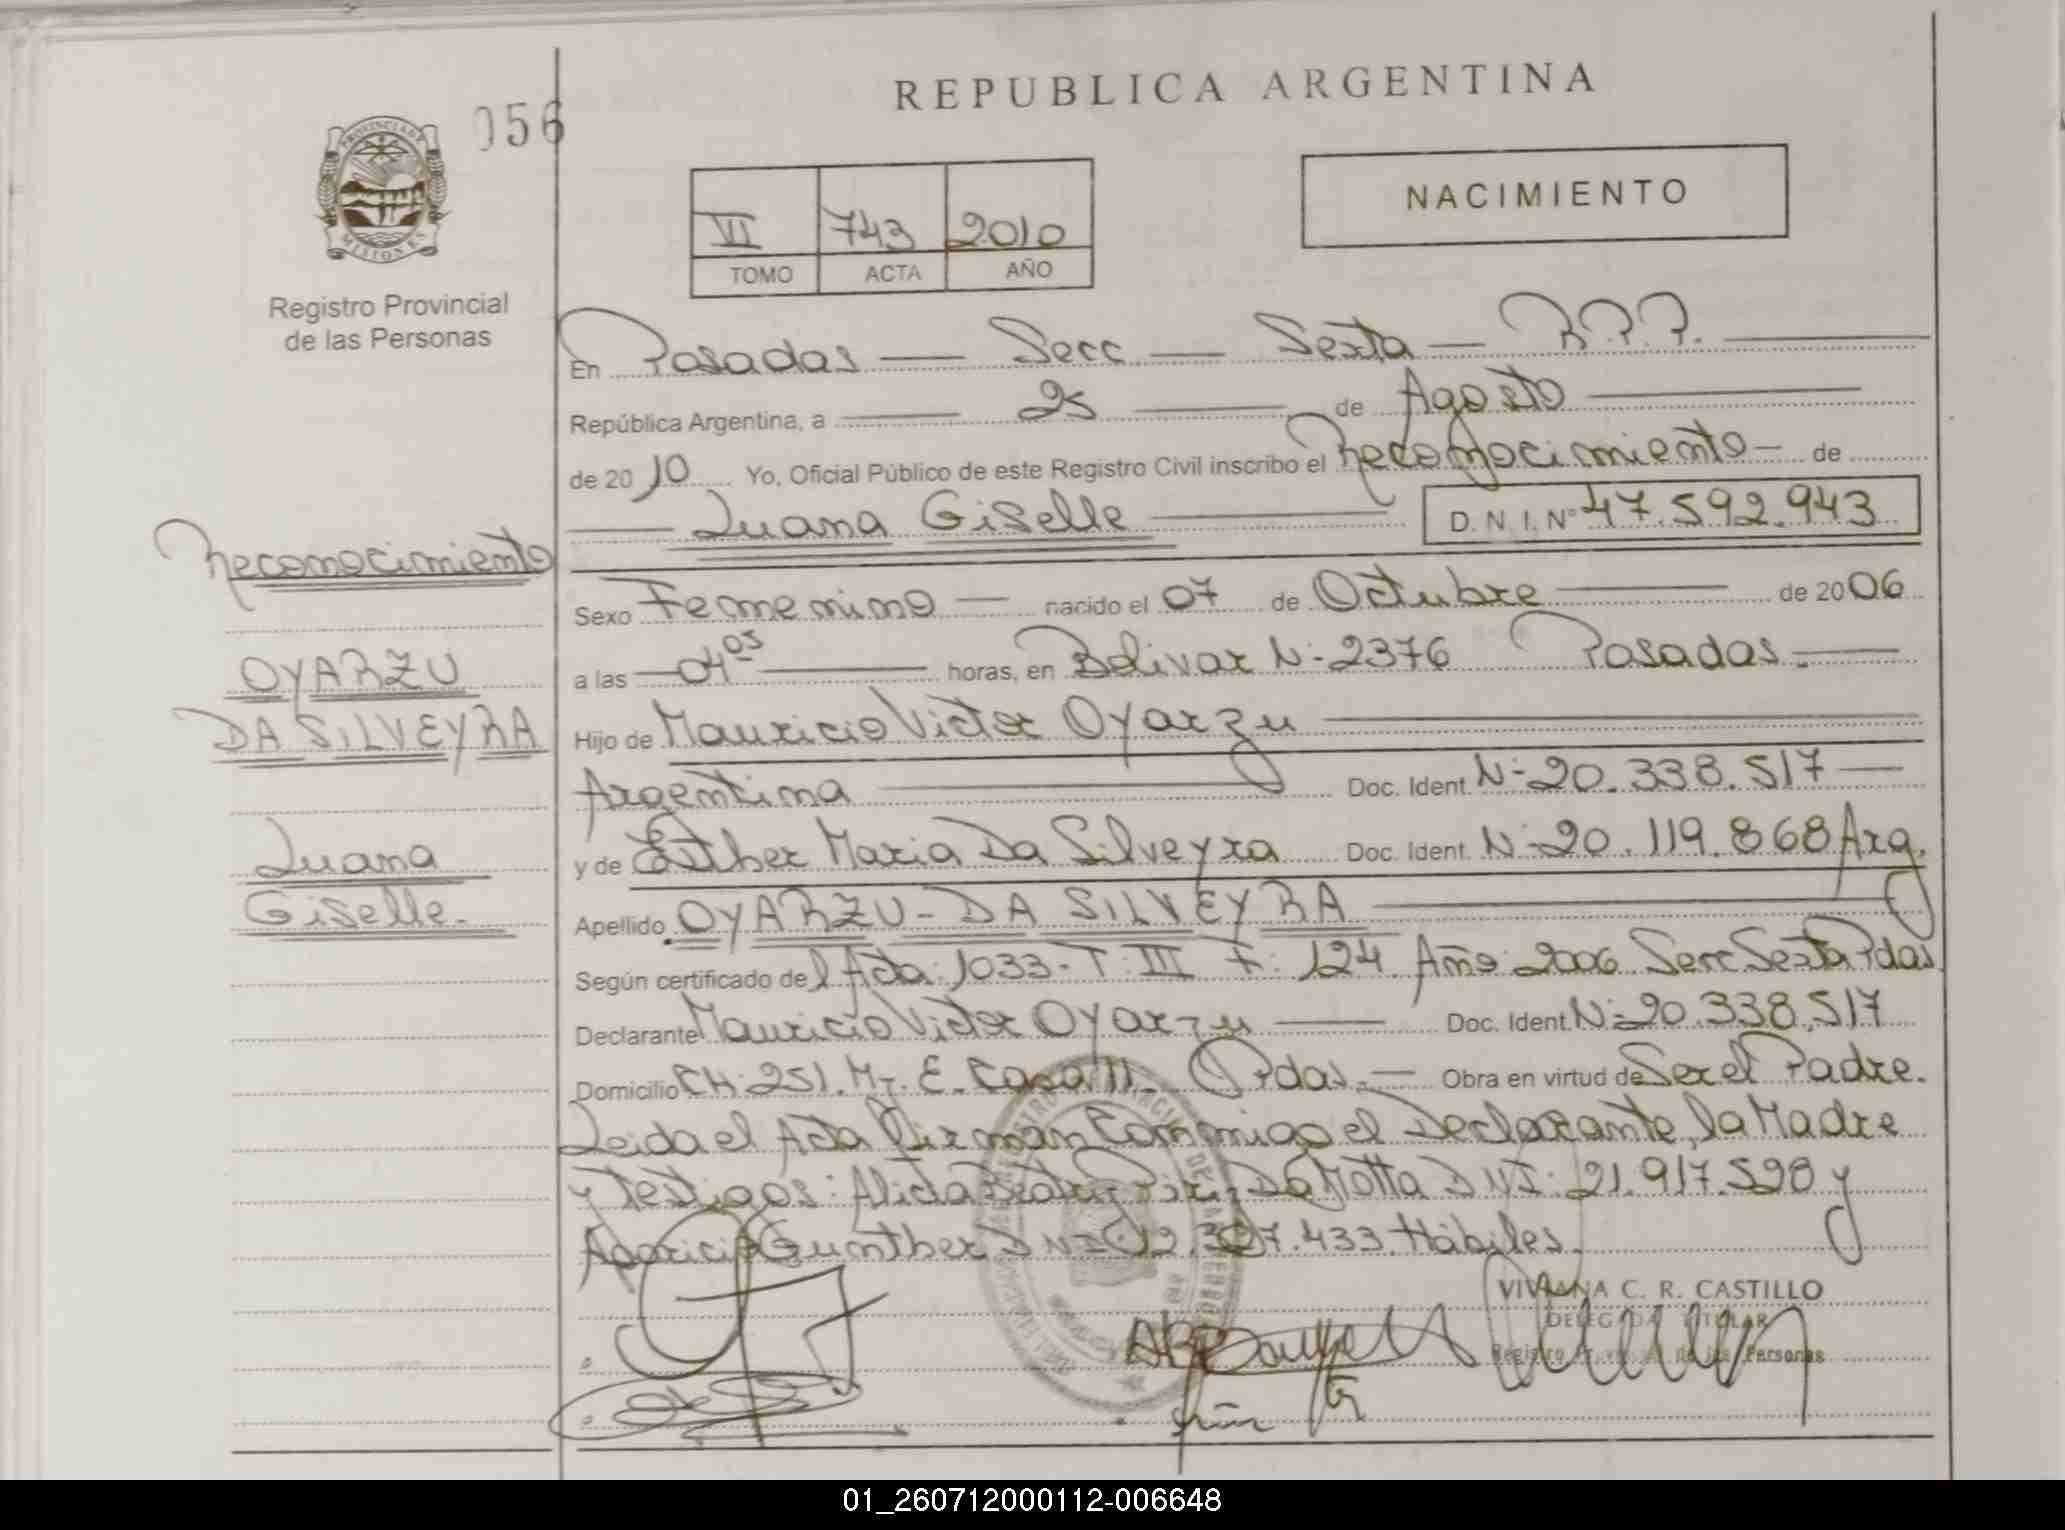 REPUBLICA ARGENTINA
056
PROVINCIA DE
MISIONES
Registro Provincial
de las Personas
VI 743 2010
TOMO ACTA AÑO
NACIMIENTO
En Posadas — Secc — Sexta — R.P.P.
República Argentina, a — 25 — de Agosto
de 2010 Yo, Oficial Público de este Registro Civil inscribo el Reconocimiento - de
Luana Giselle D.N.I. Nº 47.592.943
Reconocimiento
OYARZU
DA SILVEYRA
Luana
Giselle.
Sexo Femenino — nacido el 07 de Octubre de 2006
a las 04 05 horas, en Bolivar N- 2376 Posadas.
Hijo de Mauricio Victor Oyarzu
Argentina Doc. Ident. N- 20.338.517
y de Esther Maria Da Silveyra Doc. Ident. N- 20.119.868 Arg.
Apellido OYARZU - DA SILVEYRA
Según certificado del Acta: 1033 - T: III F: 124 Año: 2006 Secc Sexta Pdas
Declarante Mauricio Victor Oyarzu Doc. Ident. N- 20.338.517
Domicilio CH: 251. Mz. E. Casa 11. Pdas. — Obra en virtud de Ser el Padre.
Leida el Acta firman Conmigo el Declarante, la Madre
y Testigos: Alicia Da Motta DNI: 21.917.528 y
Aparicio Gunther DNI .433 Hábiles.
VIVIANA C. R. CASTILLO
DELEGADA TITULAR
Registro Provincial de las Personas
01_260712000112-006648